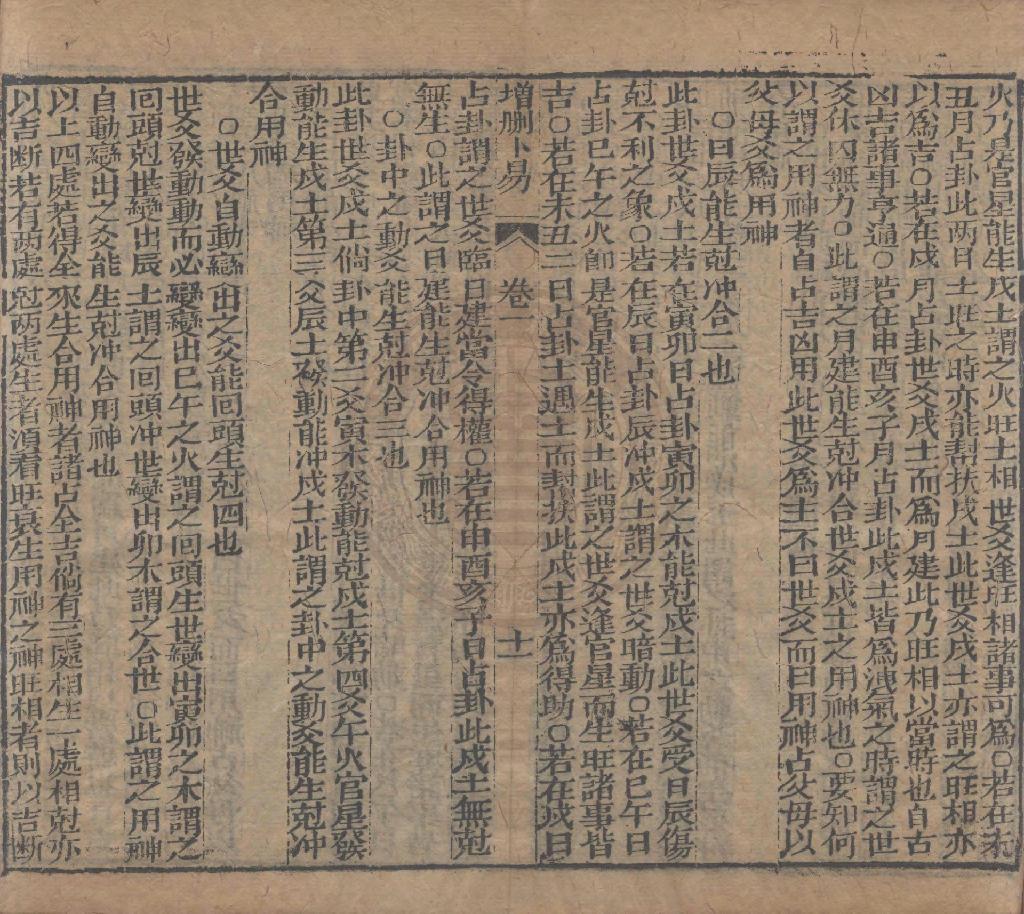 火乃是官星能生戌土謂之火旺土相世爻逢旺相諸事可爲〇若在未
丑月占卦此两日土旺之時亦能幇扶戌土此世爻戌土亦謂之旺相亦
以爲吉〇若在戌月占卦世爻戌土而爲月建此乃旺相以當時也自古
凶吉諸事亨通〇若在申酉亥子月占卦此戌土皆爲洩氣之時謂之世
爻休囚無力〇此謂之月建能生尅冲合世爻戌土之用神也〇要知何
以謂之用神者自占吉凶用此世爻爲主不曰世爻而曰用神占父母以
父母爻爲用神
〇日辰能生尅冲合二也
此卦世爻戌土若在寅卯日占卦寅卯之木能尅戌土此世爻受日辰傷
尅不利之象〇若在辰日占卦辰冲戌土謂之世爻暗動〇若在巳午日
占卦巳午之火卽是官星能生戌土此謂之世爻逢官星而生旺諸事皆
吉〇若在未丑二日占卦土遇土而封扶此戌土亦爲得助〇若在戌日
增删卜易 卷一 十一
占卦謂之世爻臨日建當令得權〇若在申酉亥子日占卦此戌土無尅
無生〇此謂之日建能生尅冲合用神也
〇卦中之動爻能生尅冲合三也
此卦世爻戌土倘卦中第二爻寅木發動能尅戌土第四爻午火官星發
動能生戌土第三爻辰土發動能冲戌土此謂之卦中之動爻能生尅冲
合用神
〇世爻自動變出之爻能回頭生尅四也
世爻發動動而必變變出巳午之火謂之回頭生世變出寅卯之木謂之
回頭尅世變出辰土謂之回頭冲世變出卯木謂之合世〇此謂之用神
自動變出之爻能生尅冲合用神也
以上四處若得全來生合用神者諸占全吉倘有三處相生一處相尅亦
以吉断若有两處尅两處生者須看旺衰生用神之神旺相者則以吉断